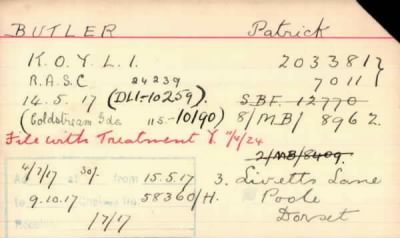 BUTLER Patrick
K.O.Y.L.I. 203381 }
R.A.S.C 24239 7011 }
14.5.17 (DLI-10259). S.B.F. 12770
(Coldstream Gds 115.-10190) 8/MB/8962.
File with Treatment Y. 7/4/24
2/MB/8409.
4/7/17 at 30/- from 15.5.17 3. Livetts Lane
to 9.10.17 58360/H. Poole
1/7/17 Dorset